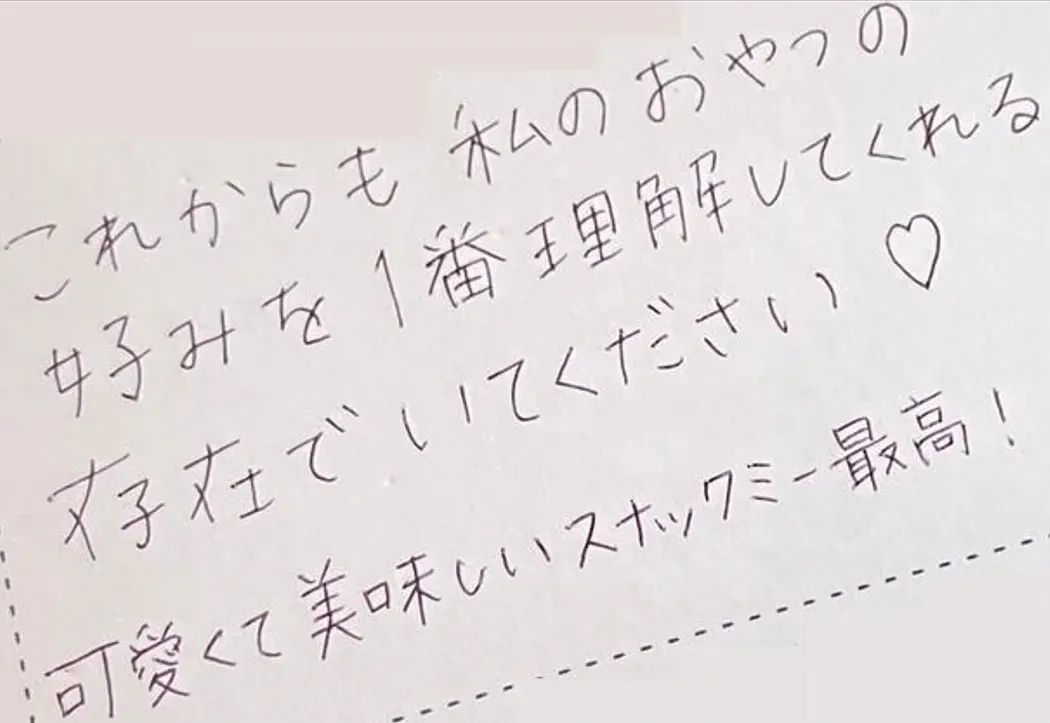 これからも 私のおやつの
好みを1番理解してくれる
存在でいてください♡
可愛くて美味しいスナックミー最高！